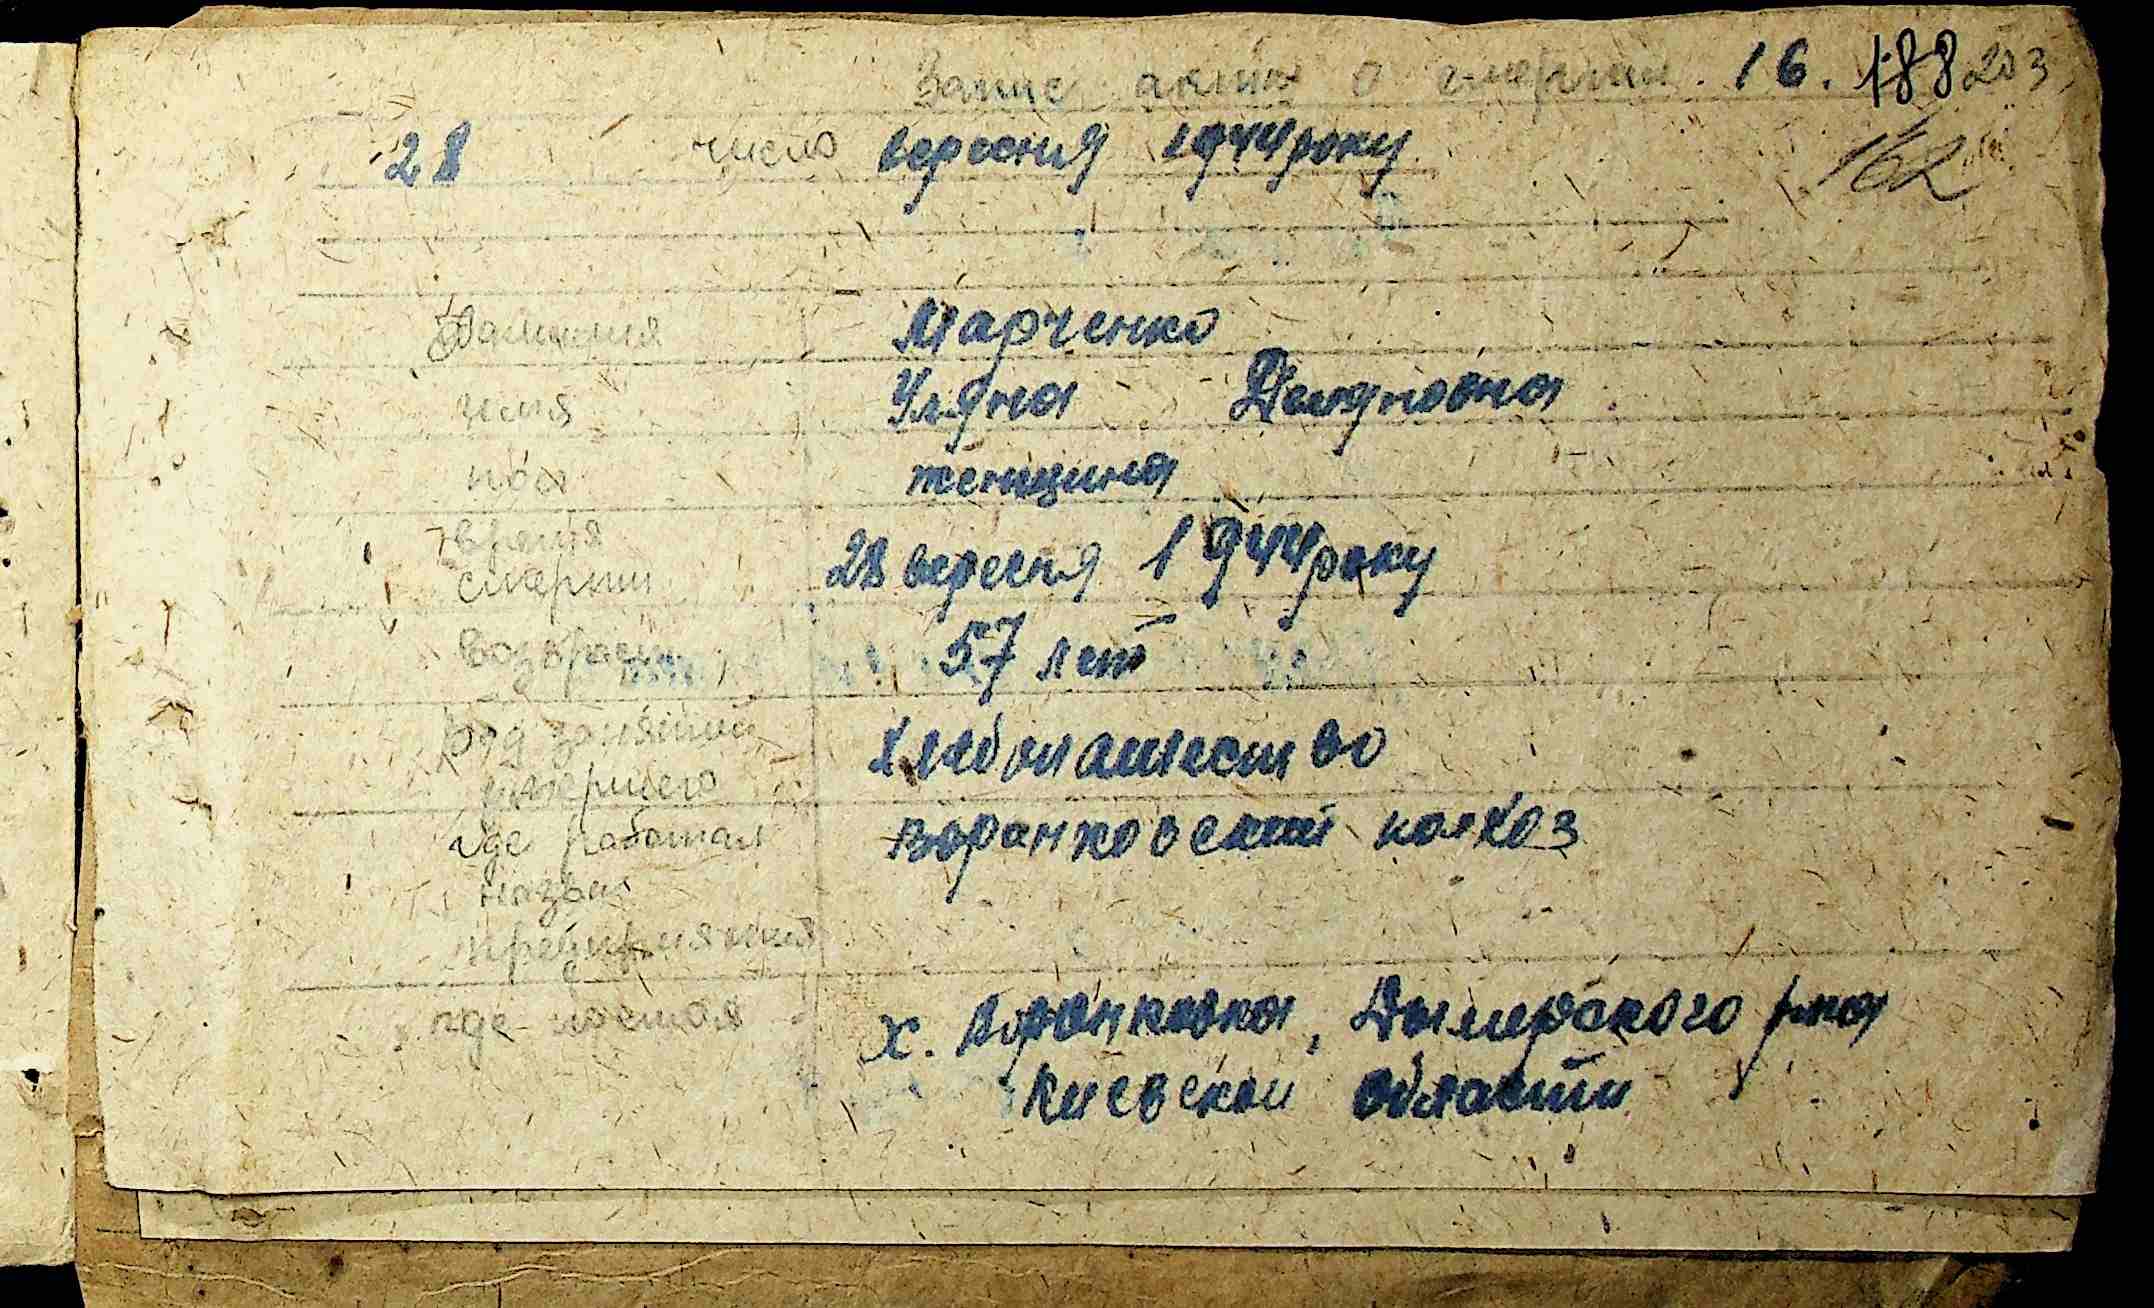 Запис акта о смерти. 16. 188 203
28 число вересня 1944 року
162
Фамилия Марченко
имя Уляна Демяновна
пол женщина
время 28 вересня 1944 року
смерти
возраст 57 лет
род занятий хлебопашество
умершего
где работал Воранковский колхоз
назван
предприятия
где х. Воронковка, Дымерского р-на
Киевской области